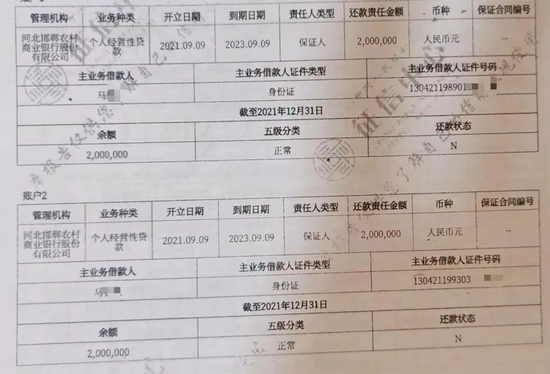 管理机构 业务种类 开立日期 到期日期 责任人类型 还款责任金额 币种 保证合同编号
河北邯郸农村商业银行股份有限公司 个人经营性贷款 2021.09.09 2023.09.09 保证人 2,000,000 人民币元 --
主业务借款人 主业务借款人证件类型 主业务借款人证件号码
马 身份证 130421198901
截至2021年12月31日
余额 五级分类 还款状态
2,000,000 正常 N
账户2
管理机构 业务种类 开立日期 到期日期 责任人类型 还款责任金额 币种 保证合同编号
河北邯郸农村商业银行股份有限公司 个人经营性贷款 2021.09.09 2023.09.09 保证人 2,000,000 人民币元 --
主业务借款人 主业务借款人证件类型 主业务借款人证件号码
马 身份证 130421199303
截至2021年12月31日
余额 五级分类 还款状态
2,000,000 正常 N